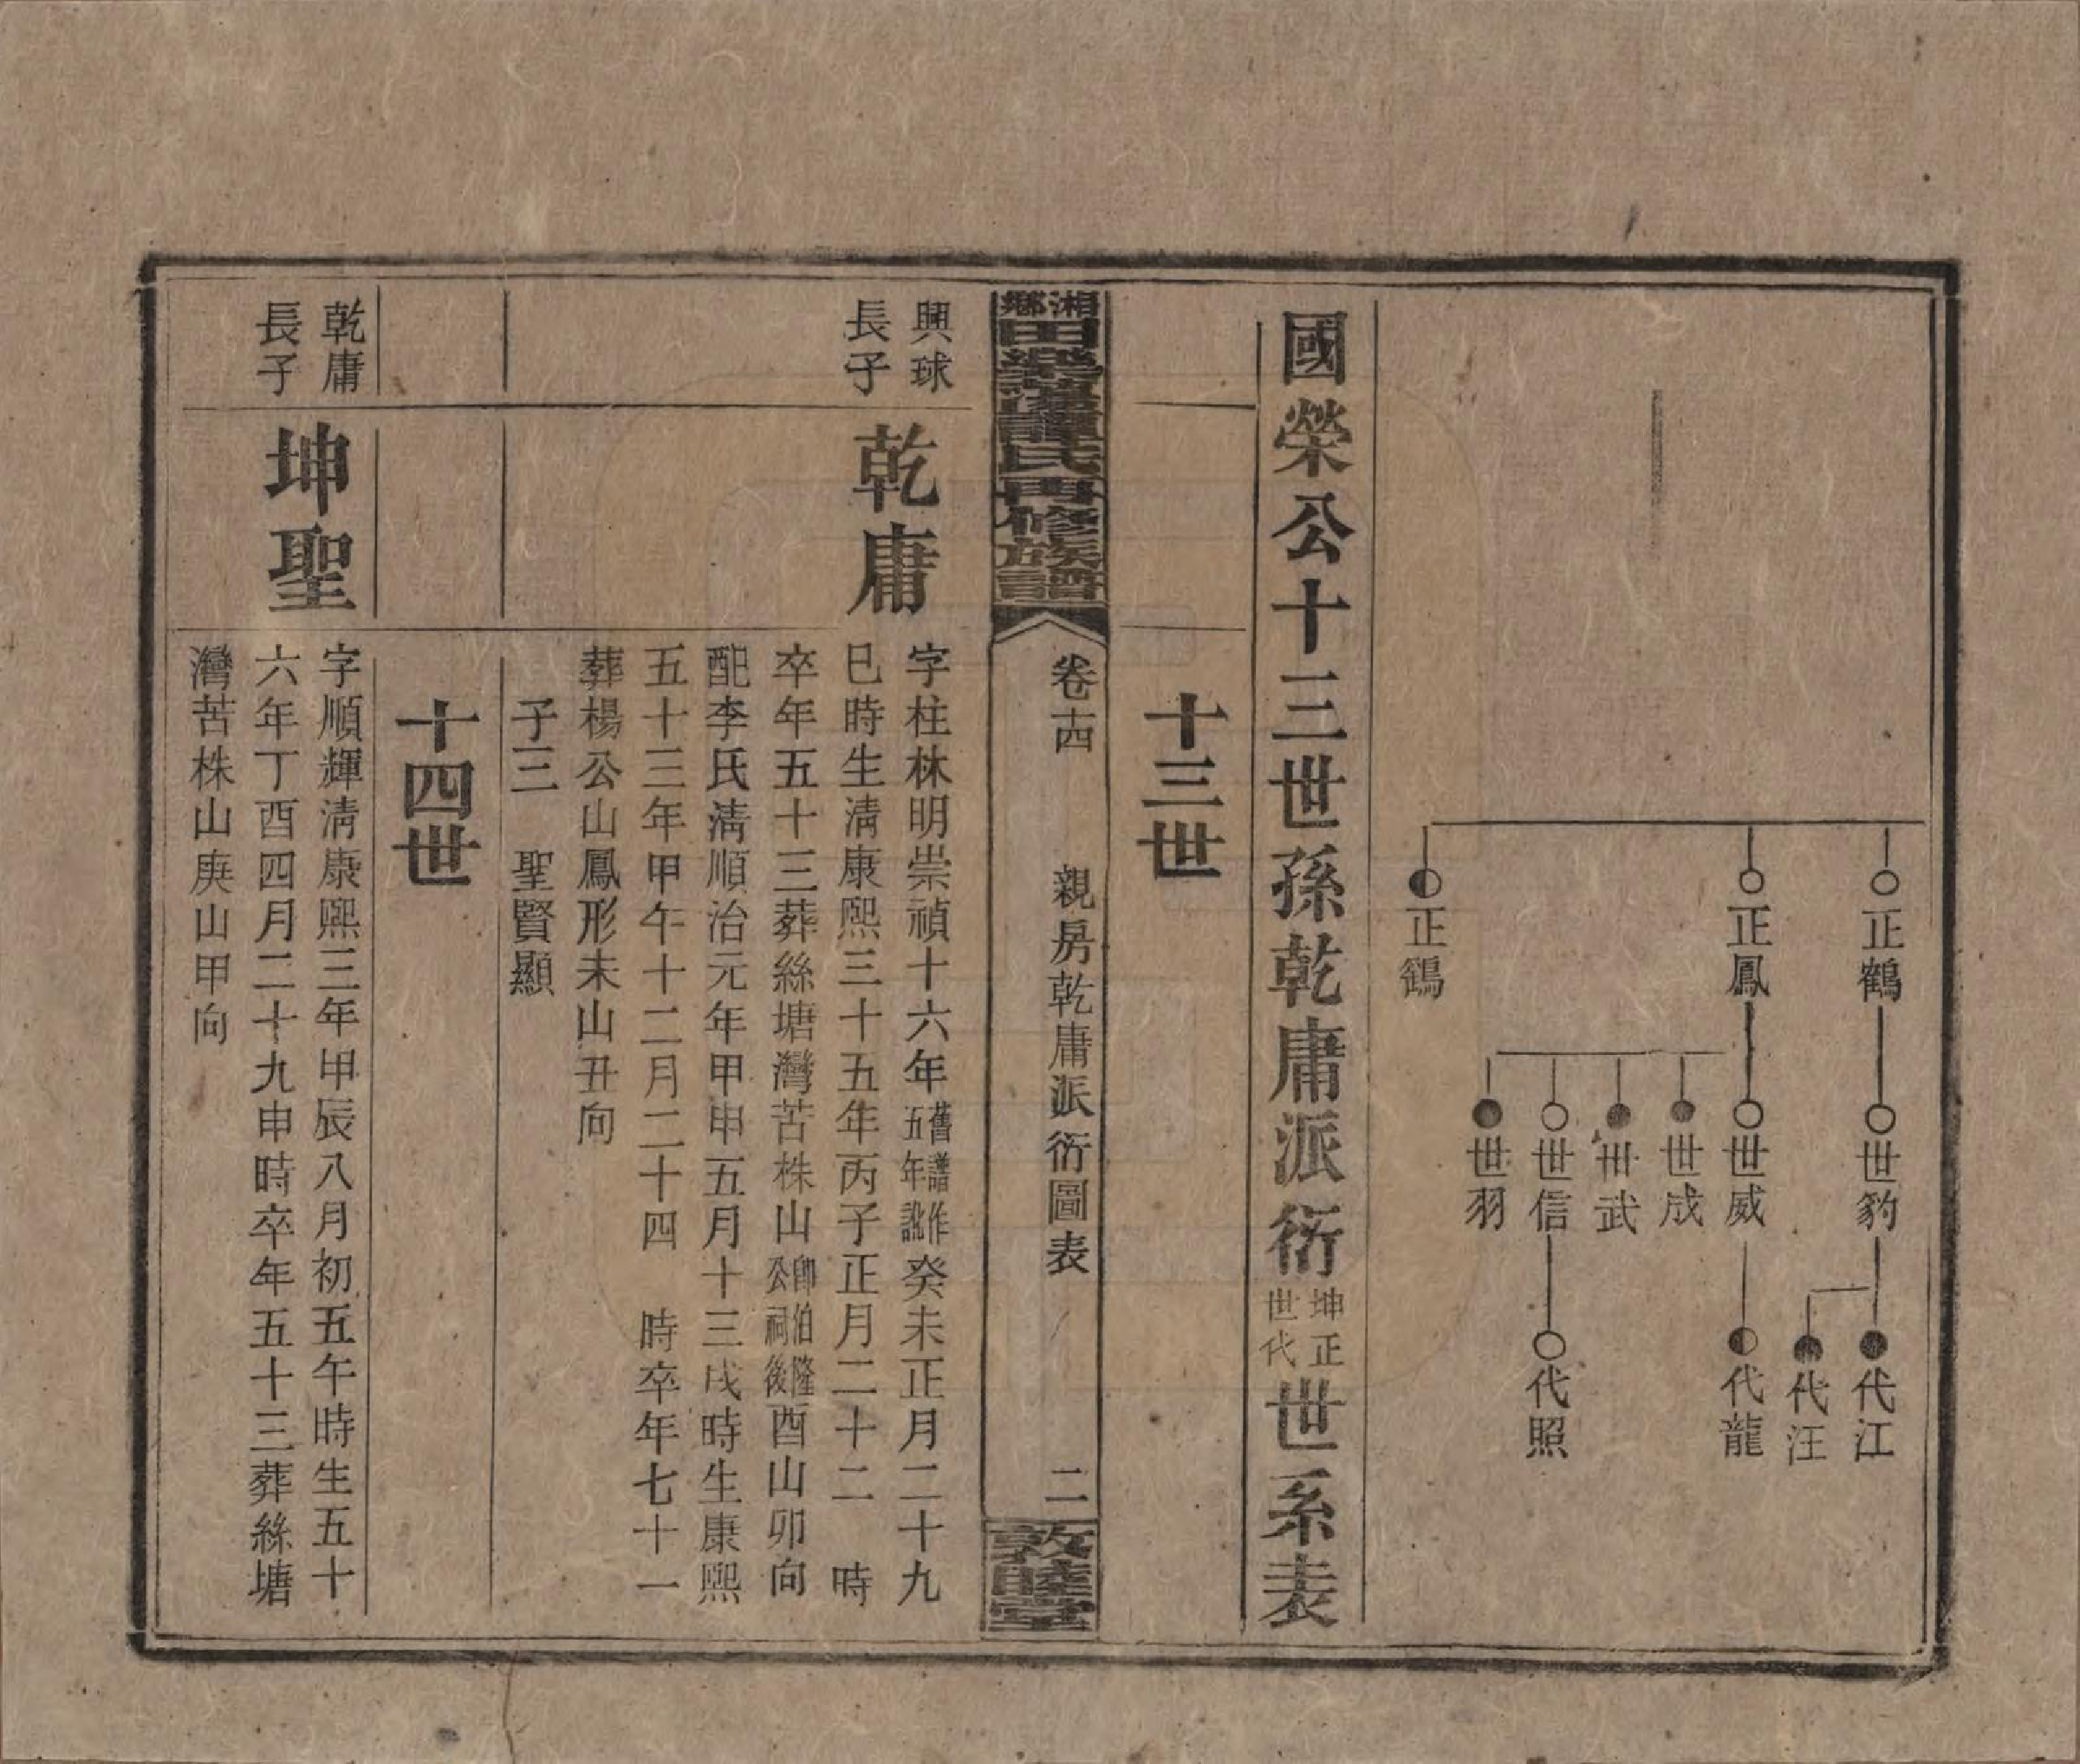 正鶴
世豹
代江
代汪
正鳳
世威
代龍
世成
世武
世信
代照
世羽
正鶴
國榮公十三世孫乾庸派衍坤正世代世系表
十三世
湘鄉田樂薌蕭氏再修族譜
卷十四
親房乾庸派衍圖表
二
敦睦堂
興球
長子
乾庸
字柱林明崇禎十六年舊譜作五年訛癸未正月二十九
巳時生清康熙三十五年丙子正月二十二 時
卒年五十三葬絲塘灣苦株山卽伯隆公祠後酉山卯向
配李氏淸順治元年甲申五月十三戌時生康熙
五十三年甲午十二月二十四 時卒年七十一
葬楊公山鳳形未山丑向
子三 聖賢顯
十四世
乾庸
長子
坤聖
字順輝淸康熙三年甲辰八月初五午時生五十
六年丁酉四月二十九申時卒年五十三葬絲塘
灣苦株山庚山甲向